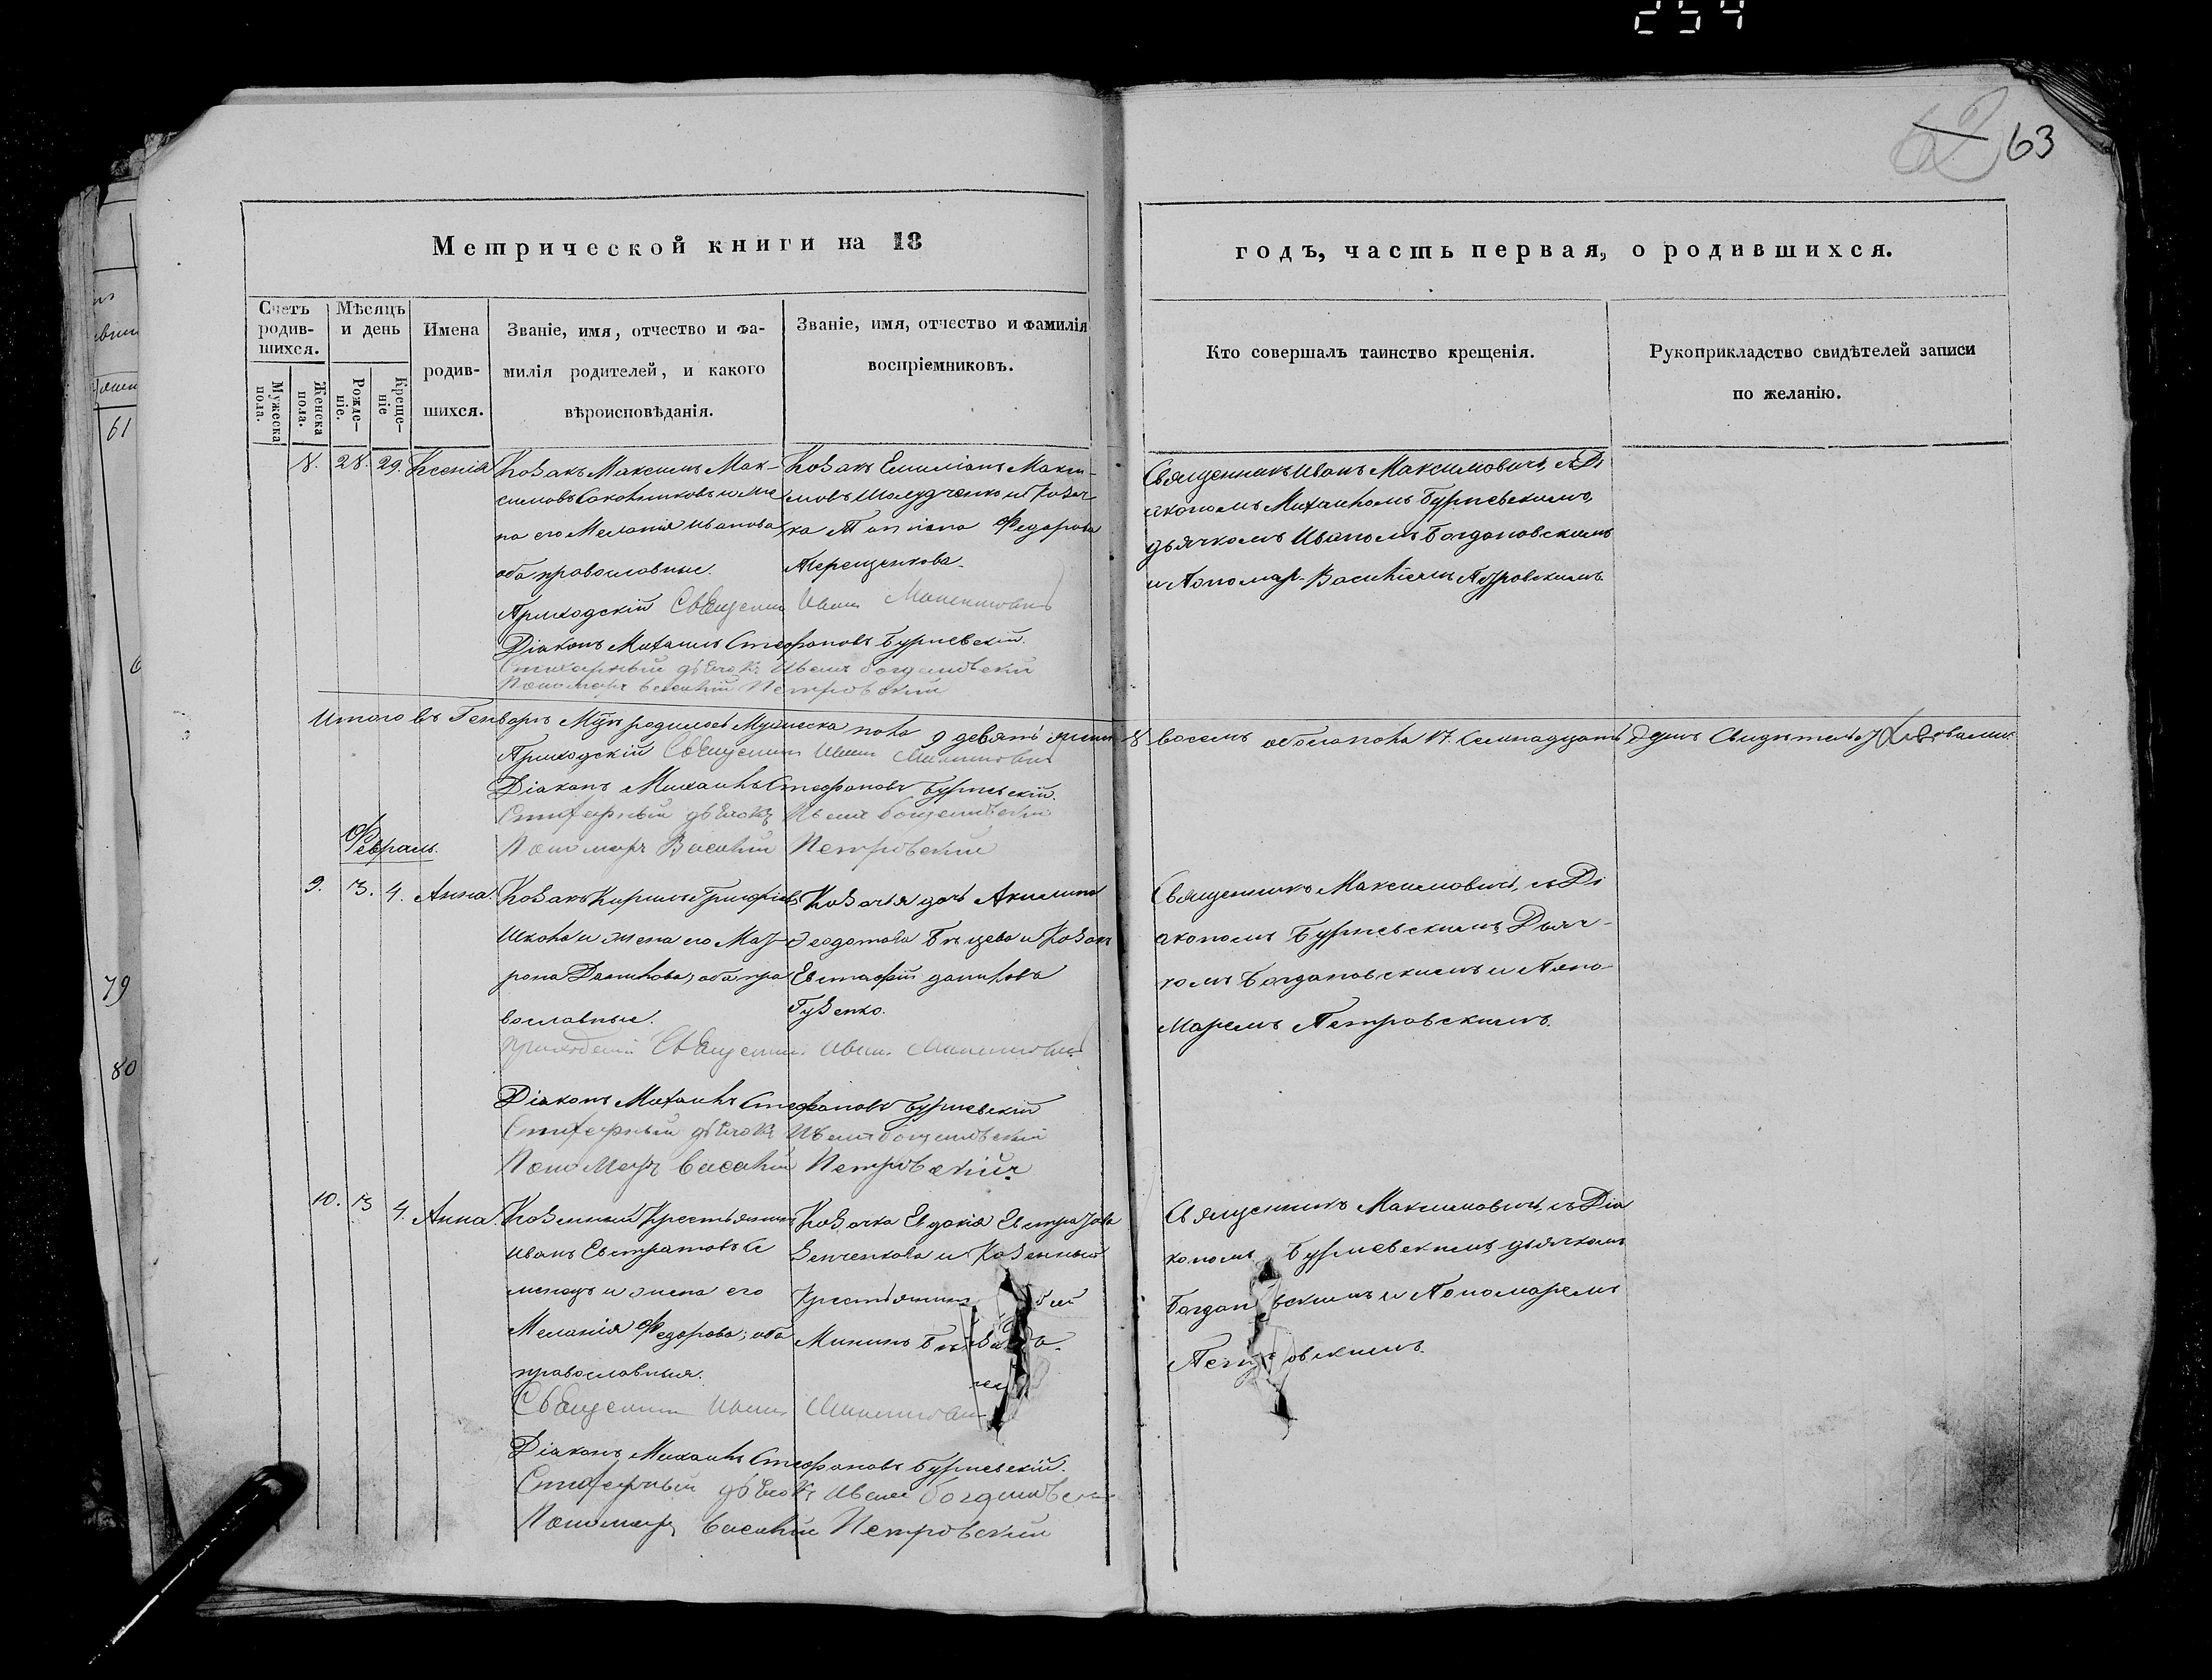 254
63
Метрической книги на 18
годъ, часть первая, о родившихся.
Счетъ родившихся.
Мужеска пола.
Женска пола.
Мѣсяцъ и день
Рожденіе.
Крещеніе
Имена родившихся.
Званіе, имя, отчество и фамилія родителей, и какого вѣроисповѣданія.
Званіе, имя, отчество и фамилія воспріемниковъ.
Кто совершалъ таинство крещенія.
Рукоприкладство свидѣтелей записи по желанію.
8. 28. 29. Ксенія
Козакъ Максимъ Мак-
симовъ Сокольниковъ и же
на его Меланія Иванова
оба православные.
Козакъ Емиліанъ Макси-
мовъ Шолудченко и Козач
ка Татіана Федорова
Терещенкова.
Священникъ Иванъ Максимовичъ, съ Ді
акономъ Михаиломъ Бурневскимъ,
дьячкомъ Иваномъ Богдановскимъ
и Пономар. Василіемъ Петровскимъ
Приходскій Священникъ Иванъ Максимовичъ
Діаконъ Михаилъ Стефановъ Бурневскій.
Стихарный дьячокъ Иванъ Богдановскій
Пономарь Василій Петровскій
Итого въ Генваръ Мцѣ родилось Мужеска пола 9 девять женск 8 восемь обоего пола 17. Семнадцать душъ Свидѣтельствовали
Приходскій Священникъ Иванъ Максимовичъ
Діаконъ Михаилъ Стефановъ Бурневскій.
Стихарный дьячокъ Иванъ Богдановскій
Пономарь Василій Петровскій
Февраль.
9. 3. 4. Анна.
Козакъ Кирилъ Григоріевъ
Школа и жена его Мат-
рона Данилова, оба пра
вославные.
Козачья дочь Акилина
Феодотова Бѣцева и Козакъ
Евстафій Даниловъ
Гузенко.
Священникъ Максимовичъ, съ Ді
акономъ Бурневскимъ, Дьяч-
комъ Богдановскимъ и Поно-
Маремъ Петровскимъ.
Приходскій Священникъ Иванъ Максимовичъ
Діаконъ Михаилъ Стефановъ Бурневскій
Стихарный дьячокъ Иванъ Богдановскій
Пономарь Василій Петровскій
10. 3 4. Анна.
Козенный Крестьянинъ
Иванъ Евстратовъ Се
менецъ и жена его
Меланія Федорова, оба
православныя.
Козачка Евдокія Евстратова
Зенченкова и Козенный
Крестьянинъ
Мининъ
Священникъ Максимовичъ, съ Діа
кономъ Бурневскимъ, дьячкомъ
Богдан вскимъ и Пономаремъ
Пет овскимъ.
Священникъ Иванъ Максимович
Діаконъ Михаилъ Стефановъ Бурневскій.
Стихарный дьячокъ Иванъ Богдановск
Пономарь Василій Петровскій
61
79
80